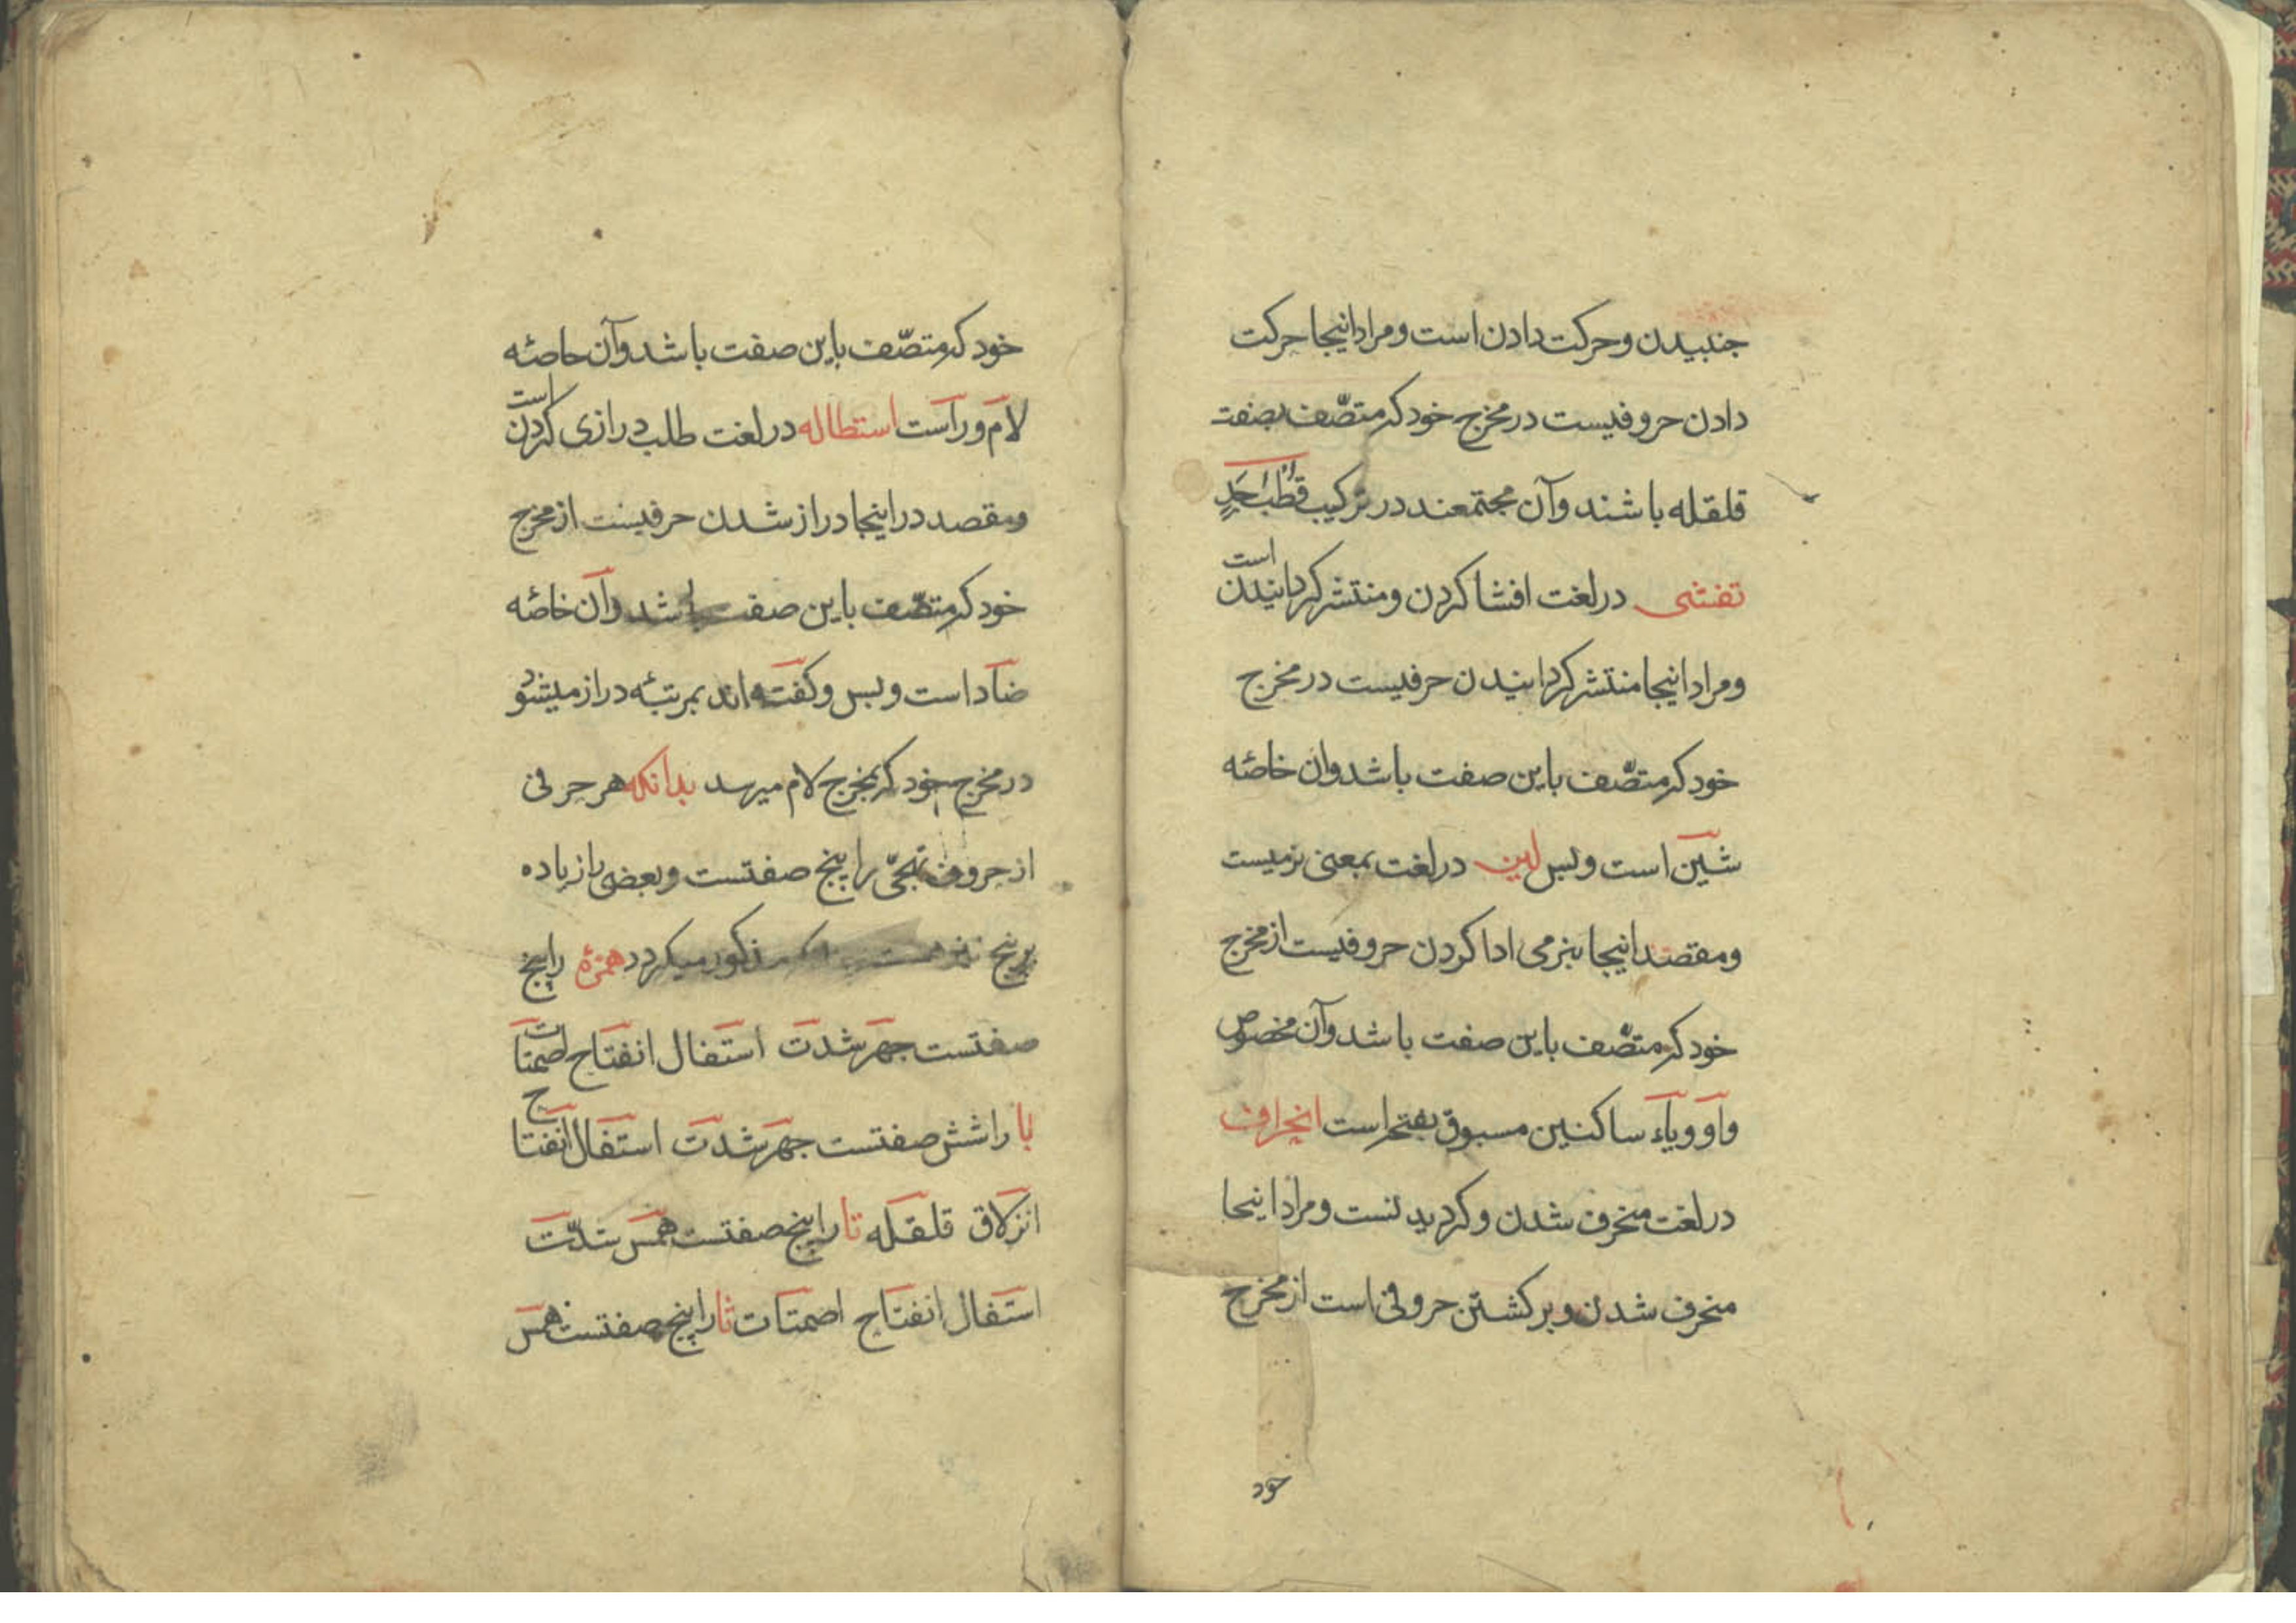 جنبیدن و حرکت دادن است و مراد اینجا حرکت
دادن حروفیست در مخرج خود که متصّف بصفت
قلقله باشند و آن مجتمعند در ترکیب قُطْبُ جَدٍ
تفشی در لغت افشا کردن و منتشر کردانیدن است
و مراد اینجا منتشر کردانیدن حرفیست در مخرج
خود که متصّف باین صفت باشد وان خاصّه
شین است و بس لین در لغت بمعنی نرمیست
و مقصد اینجا بنرمی ادا کردن حروفیست از مخرج
خود که متصّف باین صفت باشد و آن مخصوص
واو و یاء ساکنین مسبوق بفتحه است انحراف
در لغت منحرف شدن و کردیدنست و مراد اینجا
منحرف شدن و برکشتن حروفی است از مخرج
خود
خود که متصّف باین صفت باشد و آن خاصّه
لام و راست استطاله در لغت طلب درازی کردن است
و مقصد در اینجا دراز شدن حرفیست از مخرج
خود که متصّف باین صفت باشد و آن خاصّه
ضاد است و بس و کفته اند بمرتبهٔ دراز میشود
در مخرج خود که بمخرج لام میرسد بدانکه هر حرفی
از حروف تهجّی را پنج صفتست و بعضی را زیاده
بر پنج نیز هست مذکور میکردد همزهٔ را پنج
صفتست جهر شدت استفال انفتاح اصمتات
با را شش صفتست جهر شدت استفال انفتاح
انزلاق قلقله تا را پنج صفتست همس شدّت
استفال انفتاح اصمتات ثا را پنج صفتست همس